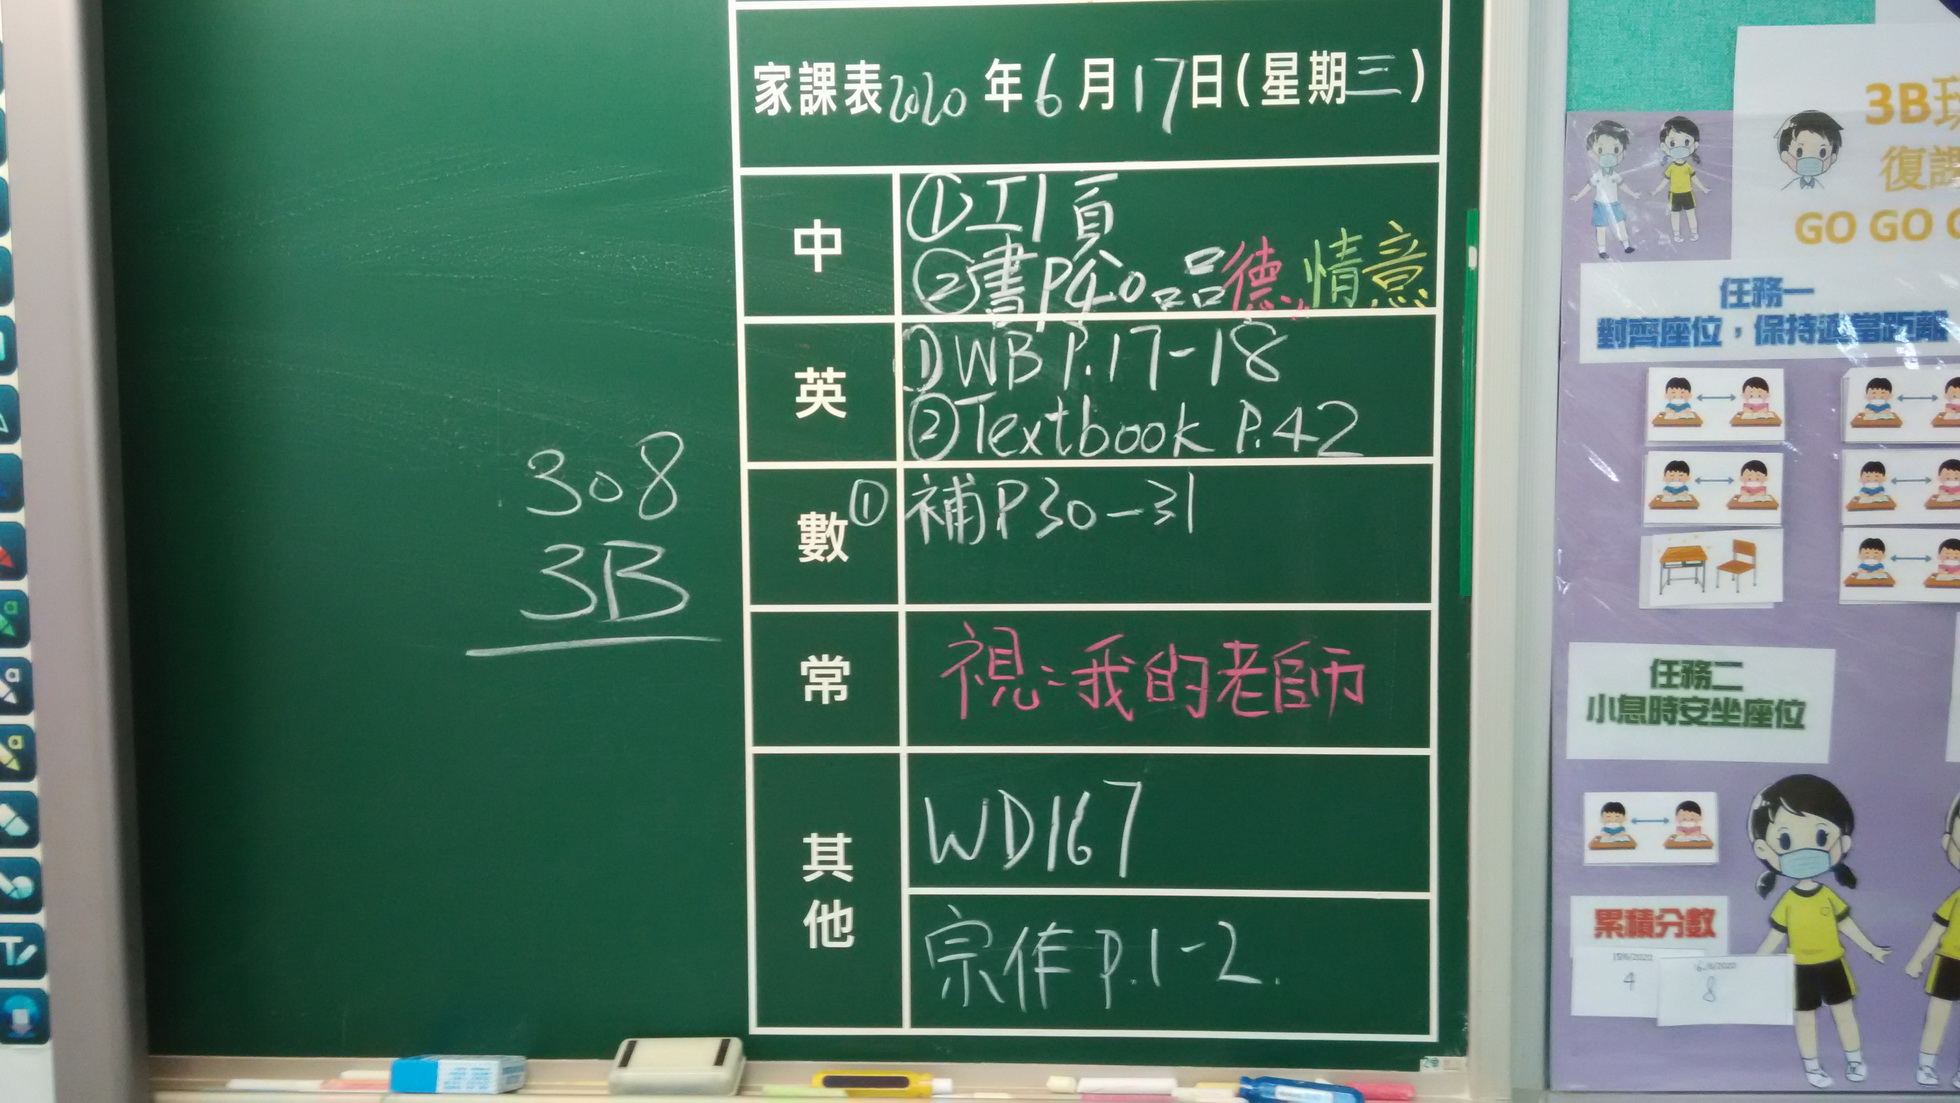 家課表2020年6月17日(星期三)
中
①工1頁
②書P40品德:情意
英
①WB P.17-18
②Textbook P.42
數
①補P30-31
常
視:我的老師
其他
WD167
宗作P.1-2.
308
3B
3B
復課
GO GO
任務一
對齊座位，保持適當距離
任務二
小息時安坐座位
累積分數
4
8